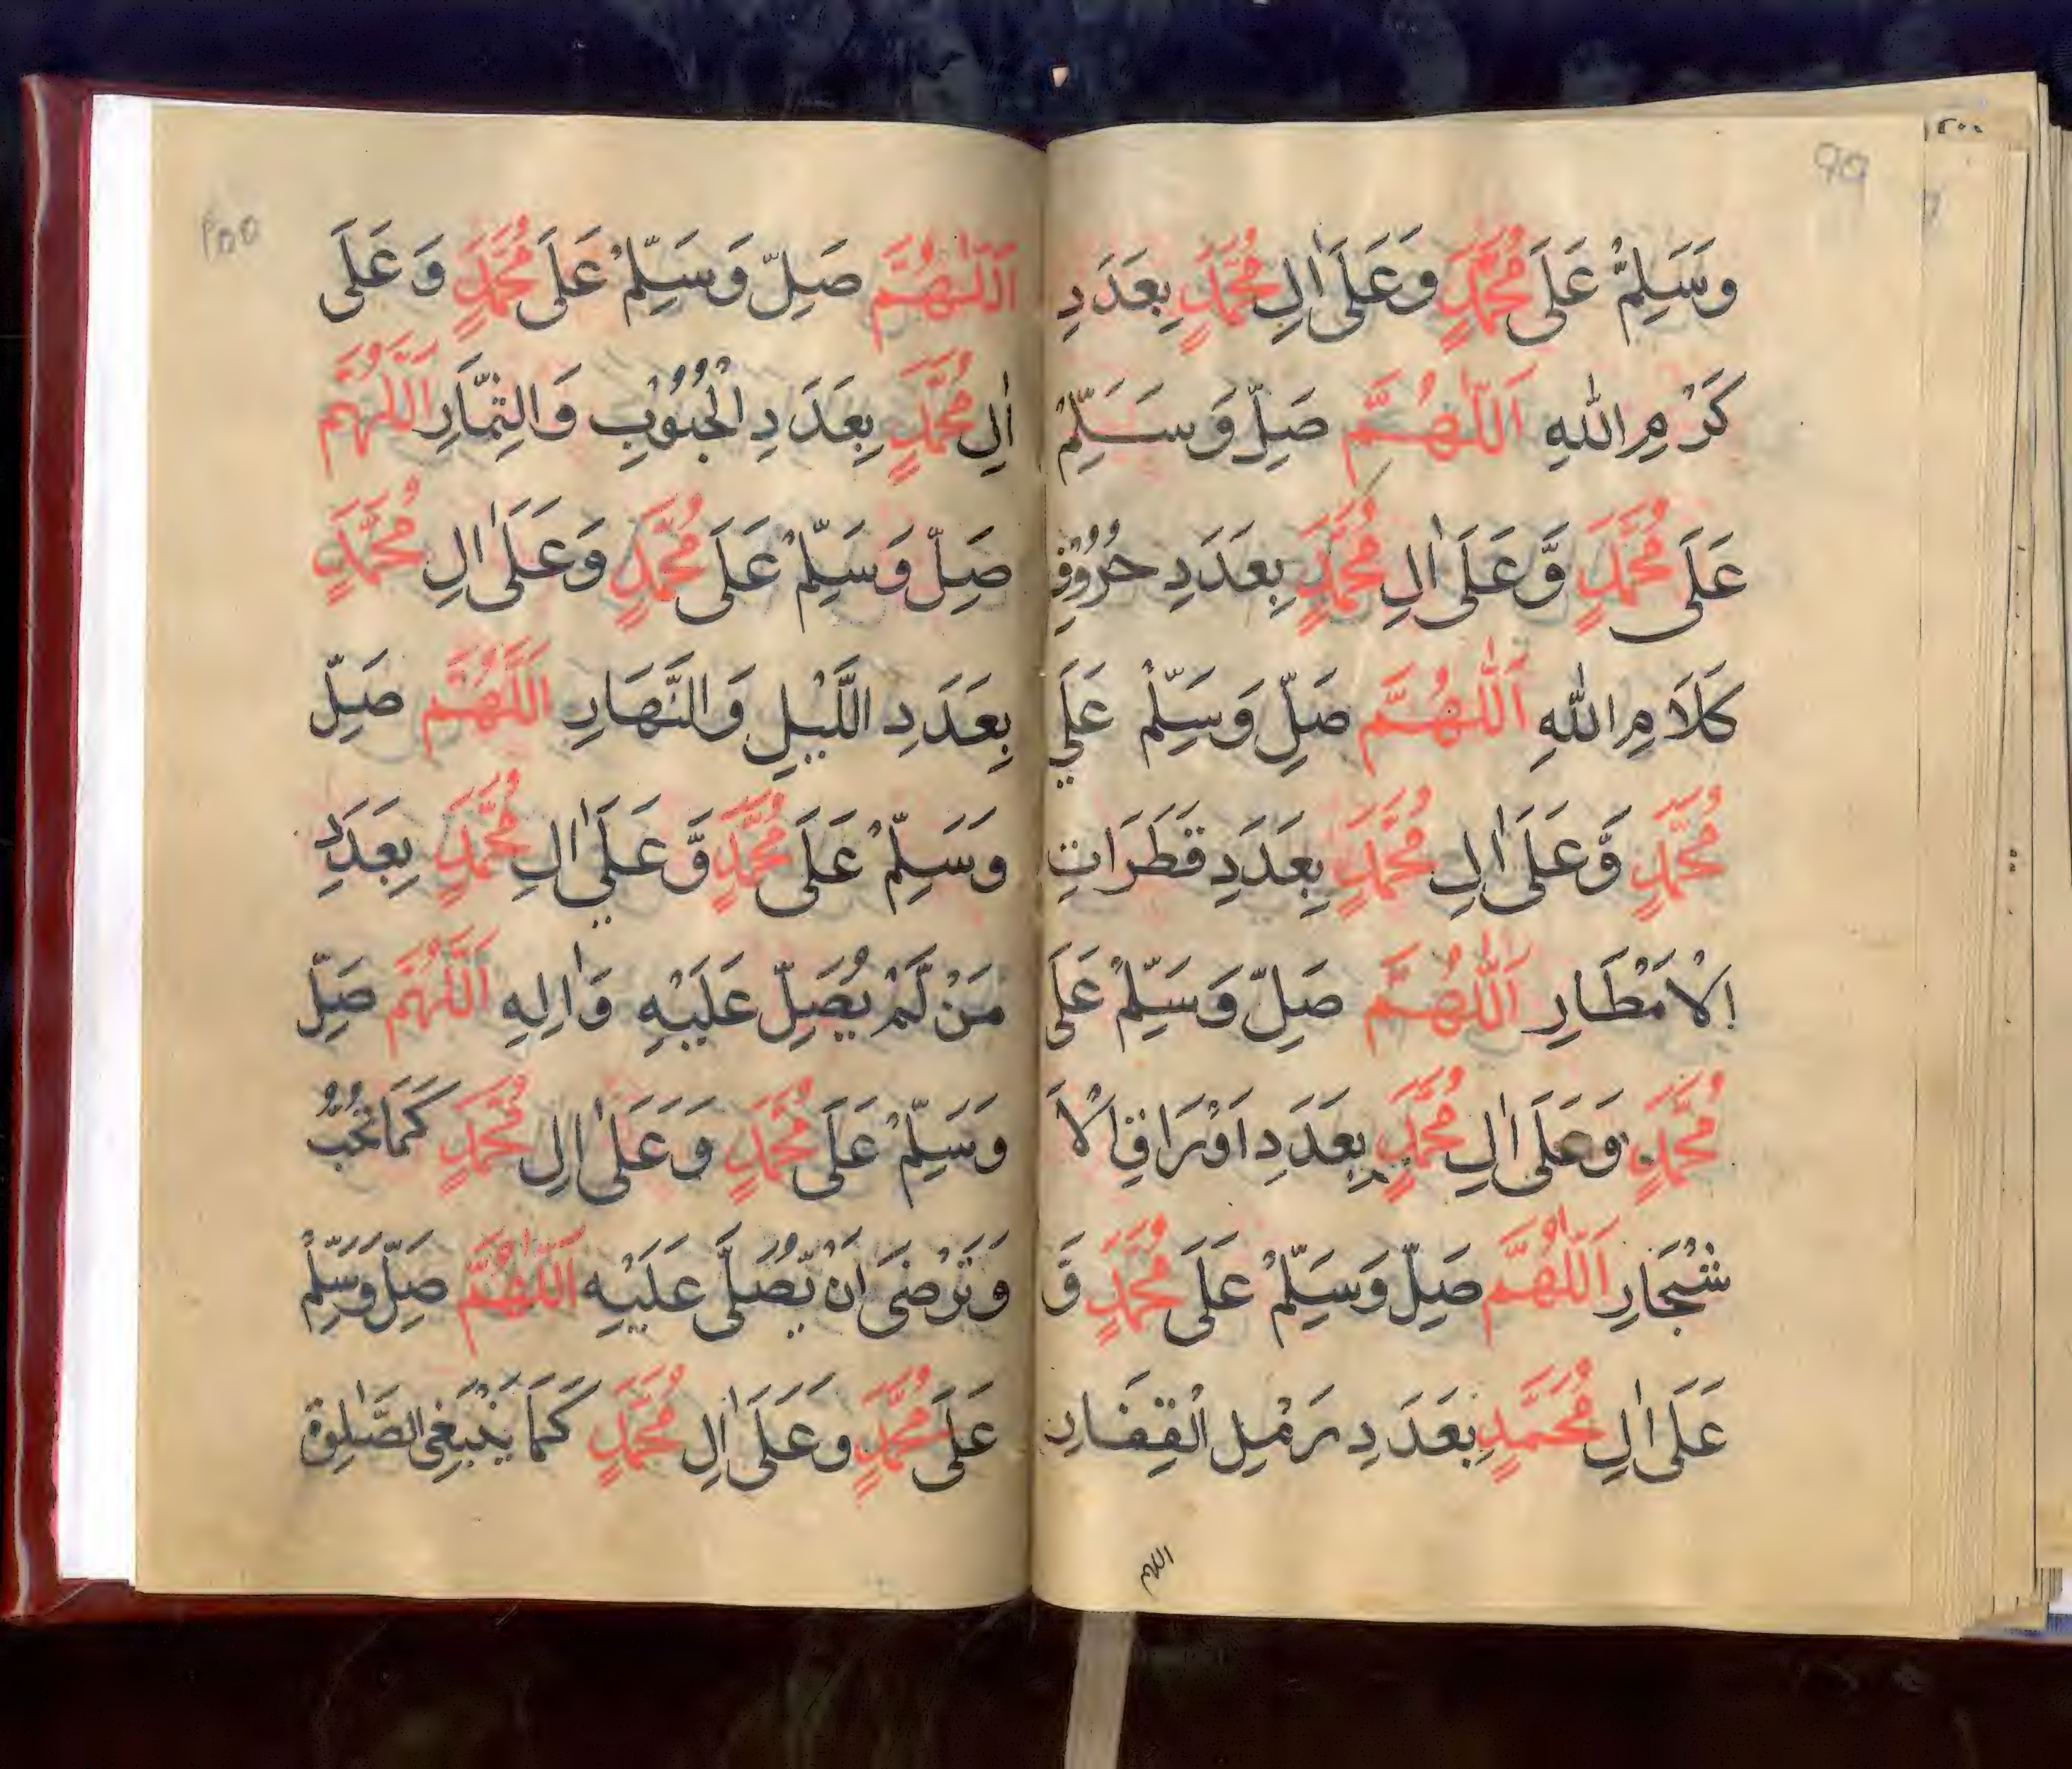 99
وَسَلِّمْ عَلَى مُحَمَّدٍ وَعَلَىٰ اٰلِ مُحَمَّدٍ بِعَدَدِ
كَرَمِ اللّٰهِ اَللّٰهُمَّ صَلِّ وَسَلِّمْ
عَلَى مُحَمَّدٍ وَّعَلَىٰ اٰلِ مُحَمَّدٍ بِعَدَدِ حُرُوْفِ
كَلَامِ اللّٰهِ اَللّٰهُمَّ صَلِّ وَسَلِّمْ عَلَي
مُحَمَّدٍ وَّعَلَىٰ اٰلِ مُحَمَّدٍ بِعَدَدِ قَطَرَاتِ
اِلْاَمْطَارِ اَللّٰهُمَّ صَلِّ وَسَلِّمْ عَلَى
مُحَمَّدٍ وَعَلَىٰ اٰلِ مُحَمَّدٍ بِعَدَدِ اَوْرَاقِ الْاَ
شْجَارِ اَللّٰهُمَّ صَلِّ وَسَلِّمْ عَلَى مُحَمَّدٍ وَّ
عَلَىٰ اٰلِ مُحَمَّدٍ بِعَدَدِ رَمْلِ الْقِفَارِ
اللهم
اَللّٰهُمَّ صَلِّ وَسَلِّمْ عَلَى مُحَمَّدٍ وَعَلَى
اٰلِ مُحَمَّدٍ بِعَدَدِ الْحُبُوْبِ وَالثِّمَارِ اَللّٰهُمَّ
صَلِّ وَسَلِّمْ عَلَى مُحَمَّدٍ وَعَلَىٰ اٰلِ مُحَمَّدٍ
بِعَدَدِ اللَّيْلِ وَالنَّهَارِ اَللّٰهُمَّ صَلِّ
وَسَلِّمْ عَلَى مُحَمَّدٍ وَّعَلَي اٰلِ مُحَمَّدٍ بِعَدَدِ
مَنْ لَّمْ يُصَلِّ عَلَيْهِ وَاٰلِهِ اَللّٰهُمَّ صَلِّ
وَسَلِّمْ عَلَى مُحَمَّدٍ وَعَلَىٰ اٰلِ مُحَمَّدٍ كَمَا تُحِبُّ
وَتَرْضَى اَنْ تُصَلَّى عَلَيْهِ اَللّٰهُمَّ صَلِّ وَسَلِّمْ
عَلَى مُحَمَّدٍ وَعَلَىٰ اٰلِ مُحَمَّدٍ كَمَا يَنْبَغِى الصَّلٰوة